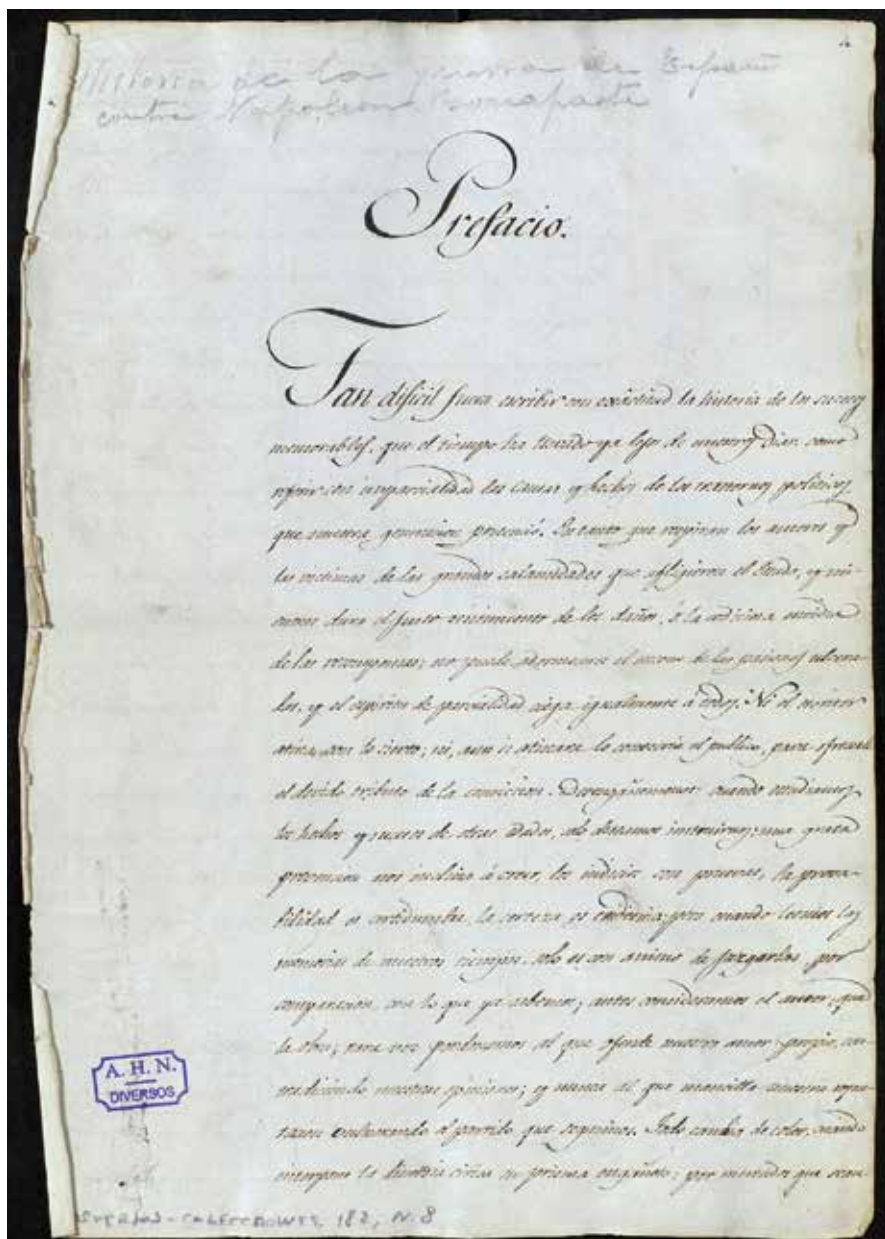 Historia de la guerra de España
contra Napoleon Bonaparte
Prefacio.
Tan dificil fuera escribir con exactitud la historia de los sucesos
memorables, que el tiempo ha llevado ya lejos de nuestros dias, como
referir con imparcialidad las causas y hechos de los trastornos politicos
que nuestra generacion presenció. En tanto que respiran los autores y
las victimas de las grandes calamidades que afligieron el Estado, y mi-
entras dura el justo resentimiento de los daños, ó la codiciosa
de las recompensas; no puede adormecerse el de las pasiones
y el espiritu de parcialidad ciega igualmente á todos. Ni el escritor
atina con lo cierto; ni, aun si atinara lo conoceria el publico, para
el debido tributo de la conviccion. cuando estudiamos
los hechos y sucesos de otras edades, solo deseamos instruirnos; una grata
nos inclina á creer, los indicios son pruebas, la proba-
bilidad es certidumbre, la certeza es evidencia; pero cuando leemos las
memorias de nuestros tiempos, solo es con animo de juzgarlas por
comparacion con lo que ya sabemos; antes consideramos el autor, que
la obra; rara vez perdonamos al que ofende nuestro amor propio, con-
tradiciendo nuestras opiniones; y nunca al que mancilla nuestra repu-
tacion el partido que seguimos. Todo cambia de color, cuando
interpone la discordia civil su prisma engañoso; por mentidos que sean
A. H. N.
DIVERSOS
DIVERSOS-COLECCIONES, 182, N. 8